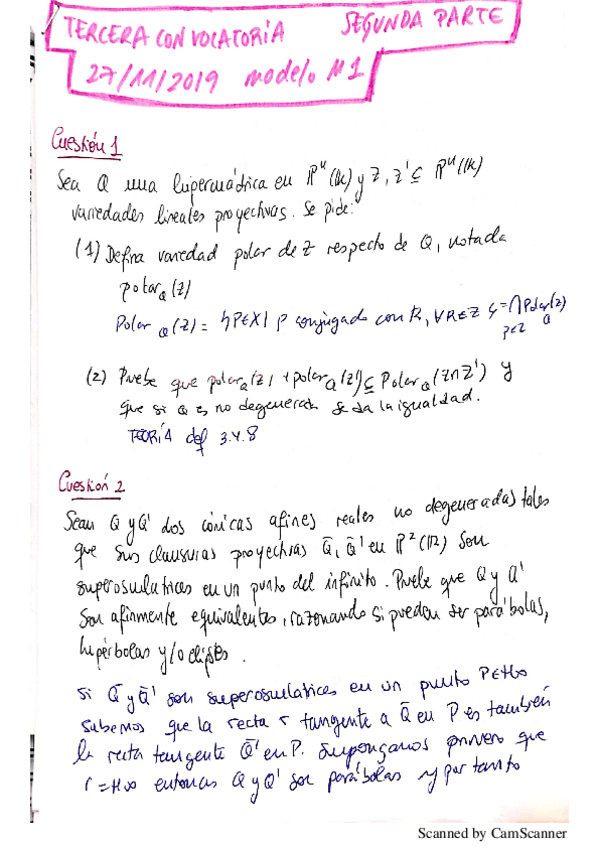 TERCERA CONVOCATORIA SEGUNDA PARTE
27/11/2019 modelo M1
Cuestión 1
Sea Q una hipercuádrica en ℙⁿ(𝕜) y Z, Z' ⊆ ℙⁿ(𝕜)
variedades lineales proyectivas. Se pide:
(1) Defina variedad polar de Z respecto de Q, notada
polar_Q(Z)
Polar_Q(Z) = {P∈X | P conjugado con R, ∀R∈Z} = ⋂_{P∈Z} Polar_Q(Z)
(2) Pruebe que polar_Q(Z) + polar_Q(Z') ⊆ Polar_Q(Z∩Z') y
que si Q es no degenerada se da la igualdad.
TEORÍA def 3.4.8
Cuestión 2
Sean Q y Q' dos cónicas afines reales no degeneradas tales
que sus clausuras proyectivas Q̄, Q̄' en ℙ²(ℝ) son
superosculatrices en un punto del infinito. Pruebe que Q y Q'
son afinmente equivalentes, razonando si pueden ser parábolas,
hipérbolas y/o elipses.
Si Q̄ y Q̄' son superosculatrices en un punto P∈H∞
sabemos que la recta r tangente a Q̄ en P es también
la recta tangente Q̄' en P. Supongamos primero que
r=H∞ entonces Q y Q' son parábolas y por tanto
Scanned by CamScanner